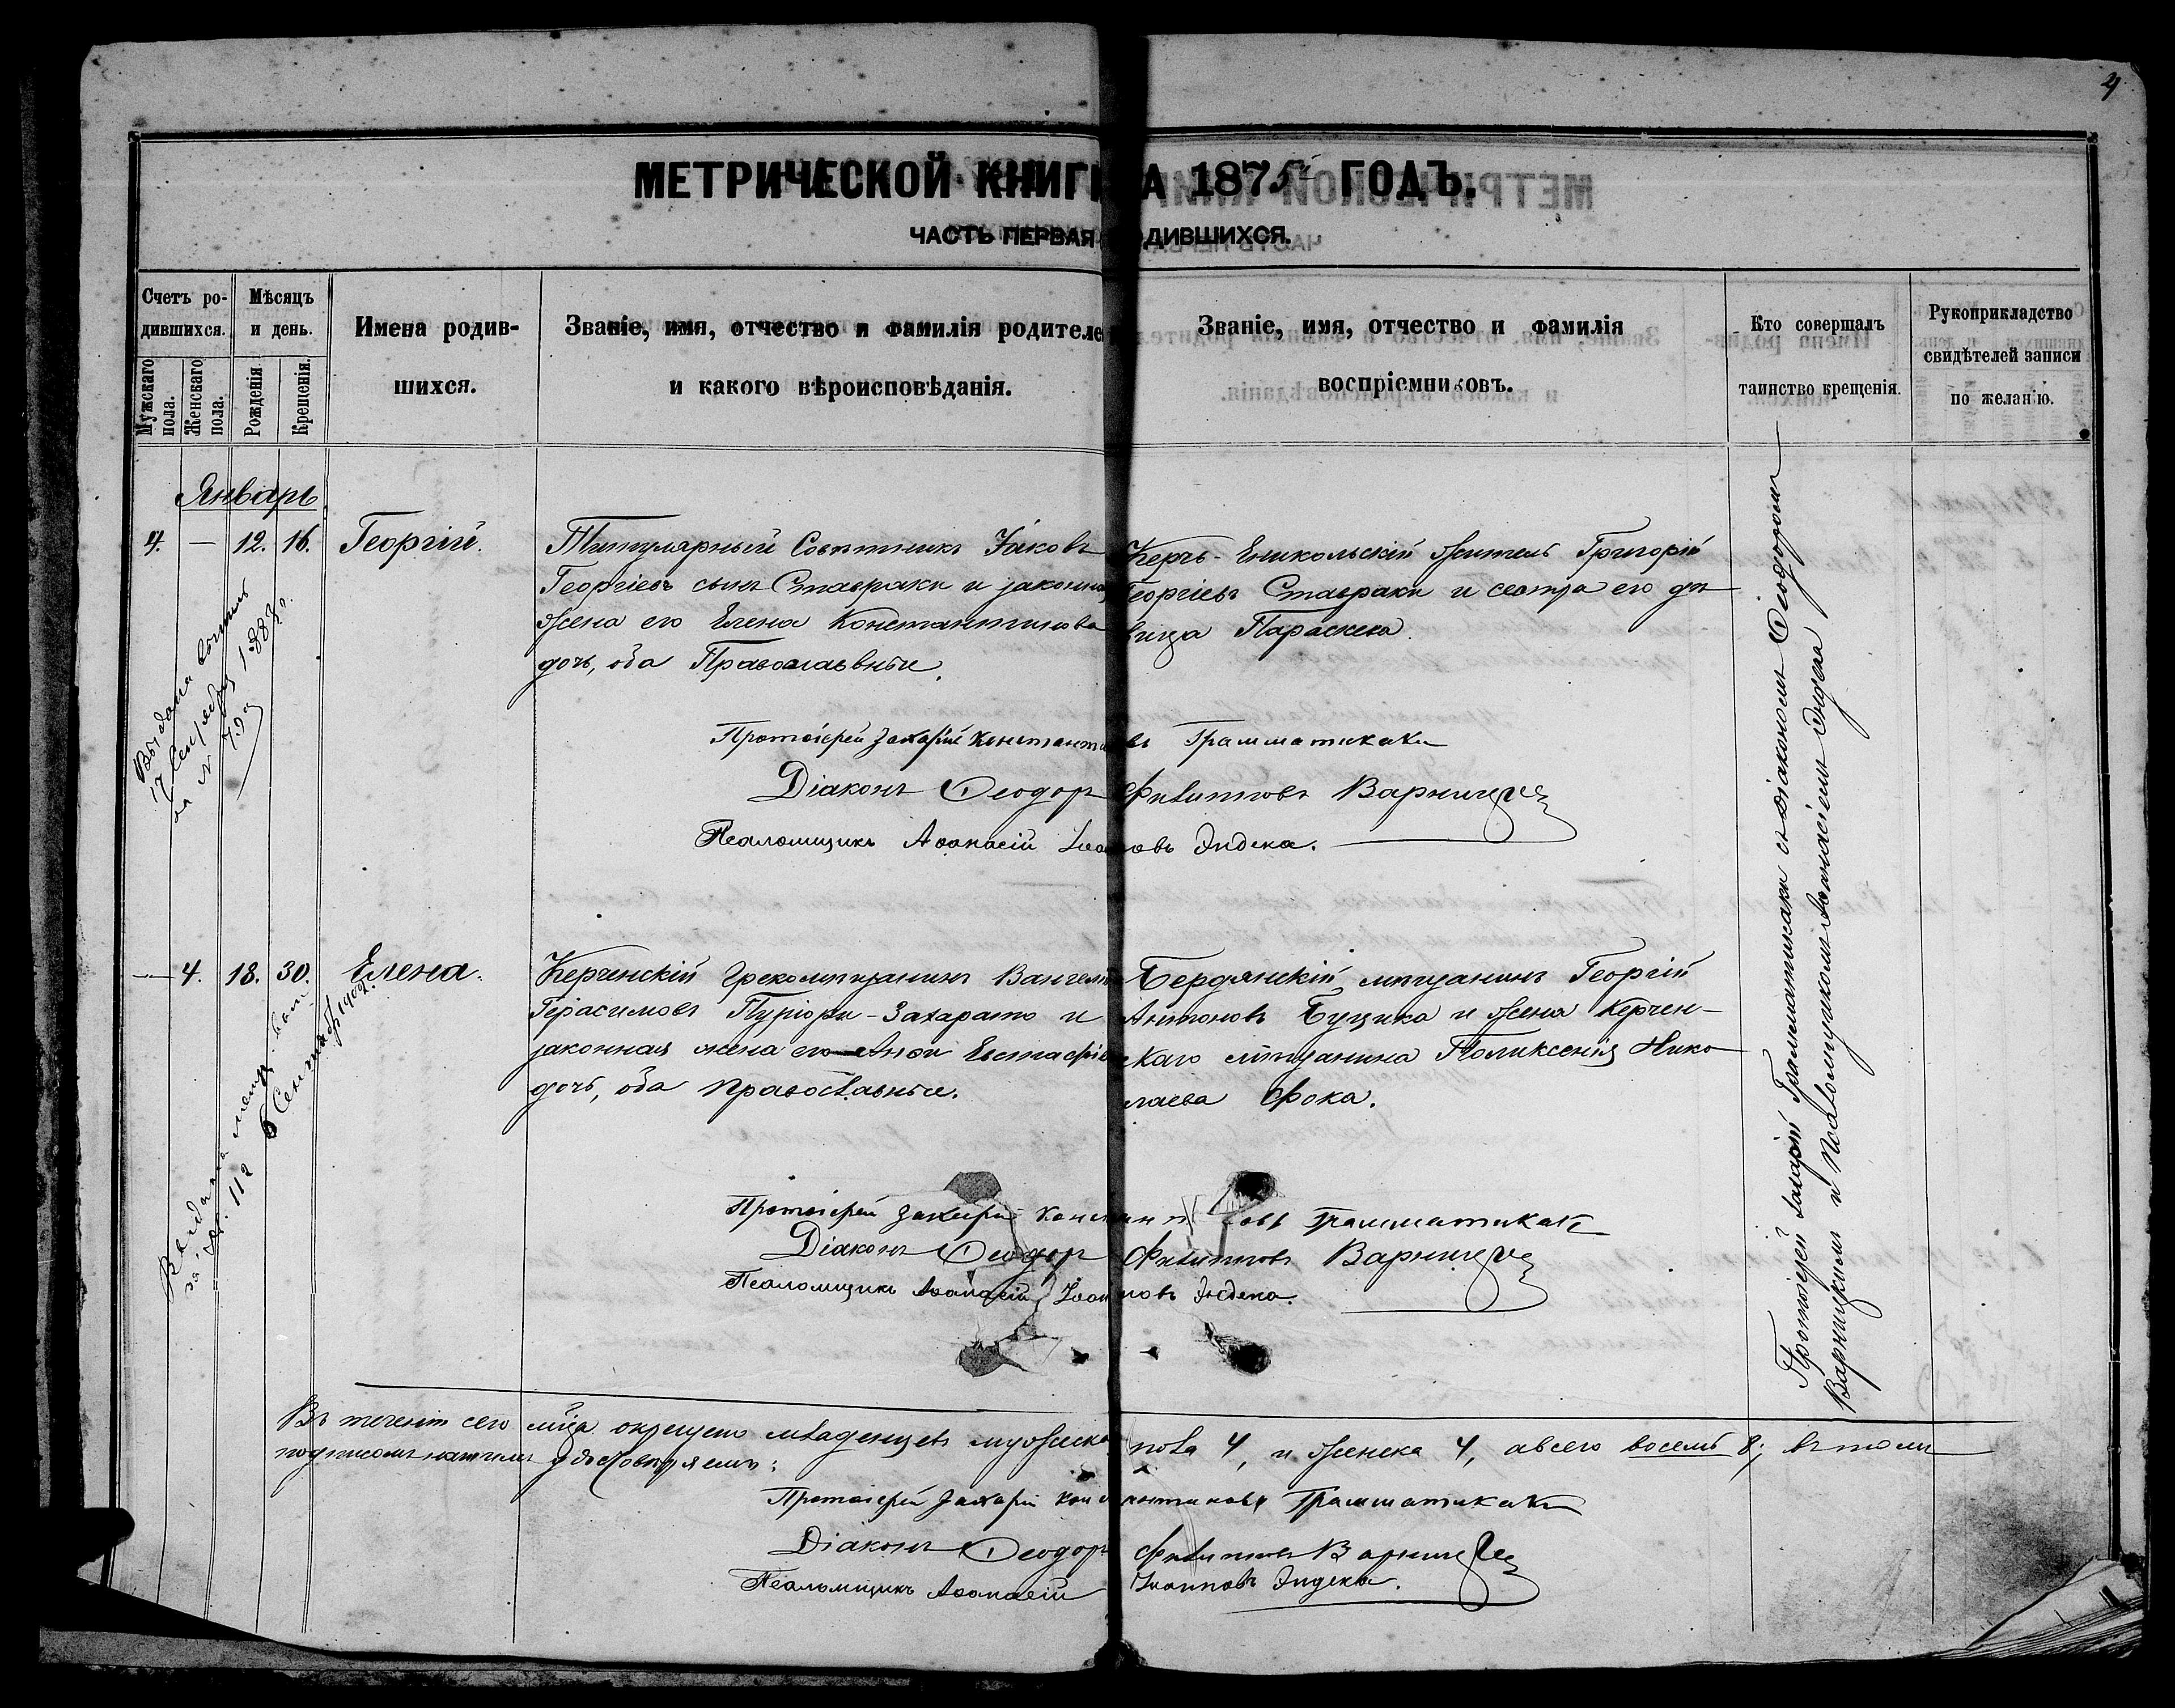 4
МЕТРИЧЕСКОЙ КНИГИ А 1875й ГОДЪ.
ЧАСТЬ ПЕРВАЯ ДИВШИХСЯ.
Счетъ ро-
дившихся.
Мужскаго пола.
Женскаго пола.
Мѣсяцъ
и день.
Рожденія.
Крещенія.
Имена родив-
шихся.
Званіе, имя, отчество и фамилія родителе
и какого вѣроисповѣданія.
Званіе, имя, отчество и фамилія
воспріемниковъ.
Кто совершалъ
таинство крещенія.
Рукоприкладство
свидѣтелей записи
по желанію.
Январь
4. — 12. 16. Георгій.
Титулярный Совѣтникъ Іаковъ
Георгіевъ сынъ Ставраки и законна
жена его Елена Константинова
дочь, оба Православные.
Керчь-Еникольскій житель Григорій
Георгіевъ Ставраки и сестра его дѣ
вица Параскева.
Выдана
17 Сентября 1883 г.
за №
Протоіерей Захарій Константи въ Грамматикаки
Діаконъ Ѳеодоръ Филипповъ Варницкій
Псаломщикъ Аѳанасій Іоа новъ Эндека.
— 4. 18. 30. Елена.
Керченскій Грекомѣщанинъ Вангели
Герасимовъ Пуріори-Захарато и
законная жена его Анна Евстафіе
дочь, оба православные.
Бердянскій мѣщанинъ Георгій
Антоновъ Буцика и жена Керчен-
скаго мѣщанина Поликсенія Нико
лаева Фока.
Выдана метр. вып.
6 Сентяб 1902 г.
за № 112
Протоіерей Захарій Конст н овъ Грамматикаки
Діаконъ Ѳеодоръ Филипповъ Варницкій
Псаломщикъ Аѳанасій Іоан новъ Эндека.
Протоіерей Захарій Грамматикаки съ діакономъ Ѳеодоромъ
Варницкимъ и Псаломщикомъ Аѳанасіемъ Эндека
Въ теченіи сего мѣца окрещено младенцевъ мужеска пола 4, и женска 4, а всего восемь 8; въ томъ
подписомъ нашимъ удостовѣряемъ:
Протоіерей Захарій Конс антиновъ Грамматикаки
Діаконъ Ѳеодоръ Филипповъ Варницкій
Псаломщикъ Аѳанасій Іоанновъ Эндека.